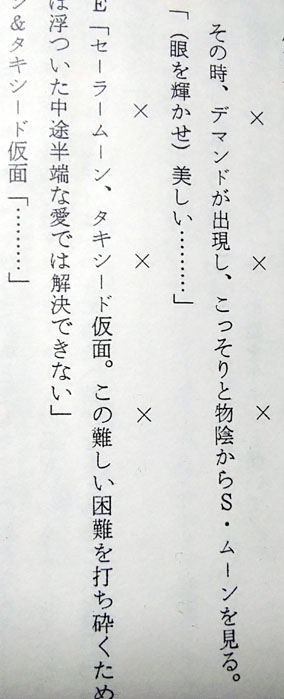 × × ×
その時、デマンドが出現し、こっそりと物陰からS・ムーンを見る。
「（眼を輝かせ）美しい…………」
× × ×
E「セーラームーン、タキシード仮面。この難しい困難を打ち砕くため
は浮ついた中途半端な愛では解決できない」
ン＆タキシード仮面「…………」